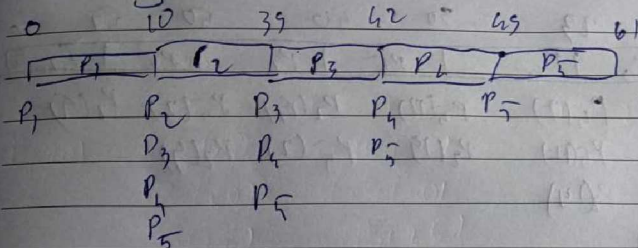 0 10 39 42 49 61
P1 P2 P3 P4 P5
P1 P2 P3 P4 P5
P3 P4 P5
P4 P5
P5